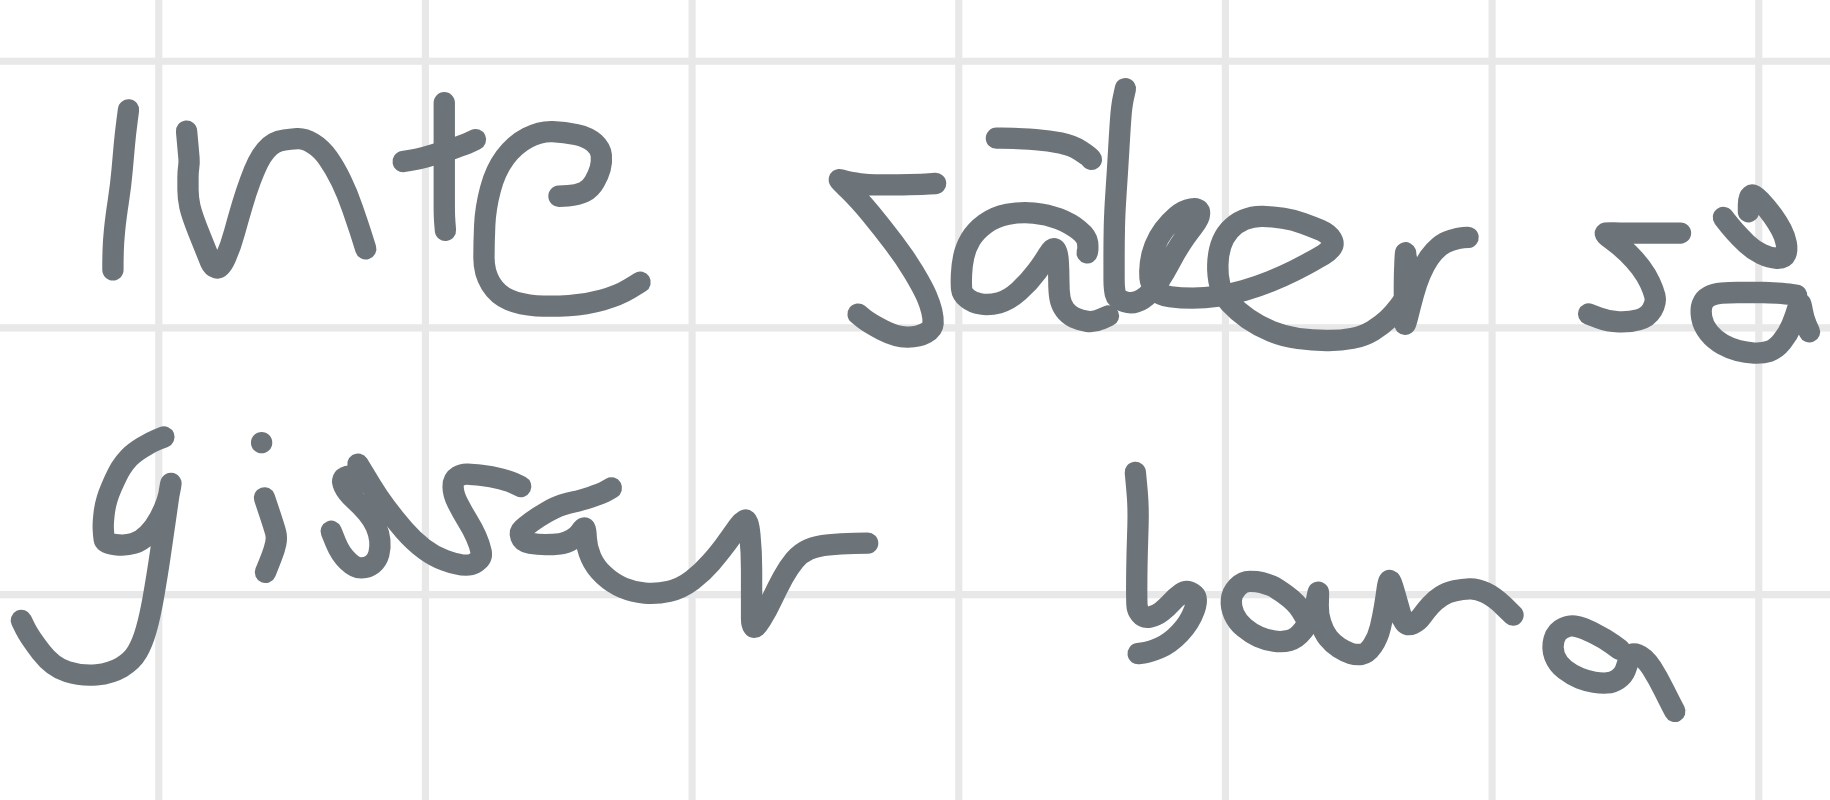 Inte säker så
gissar bara